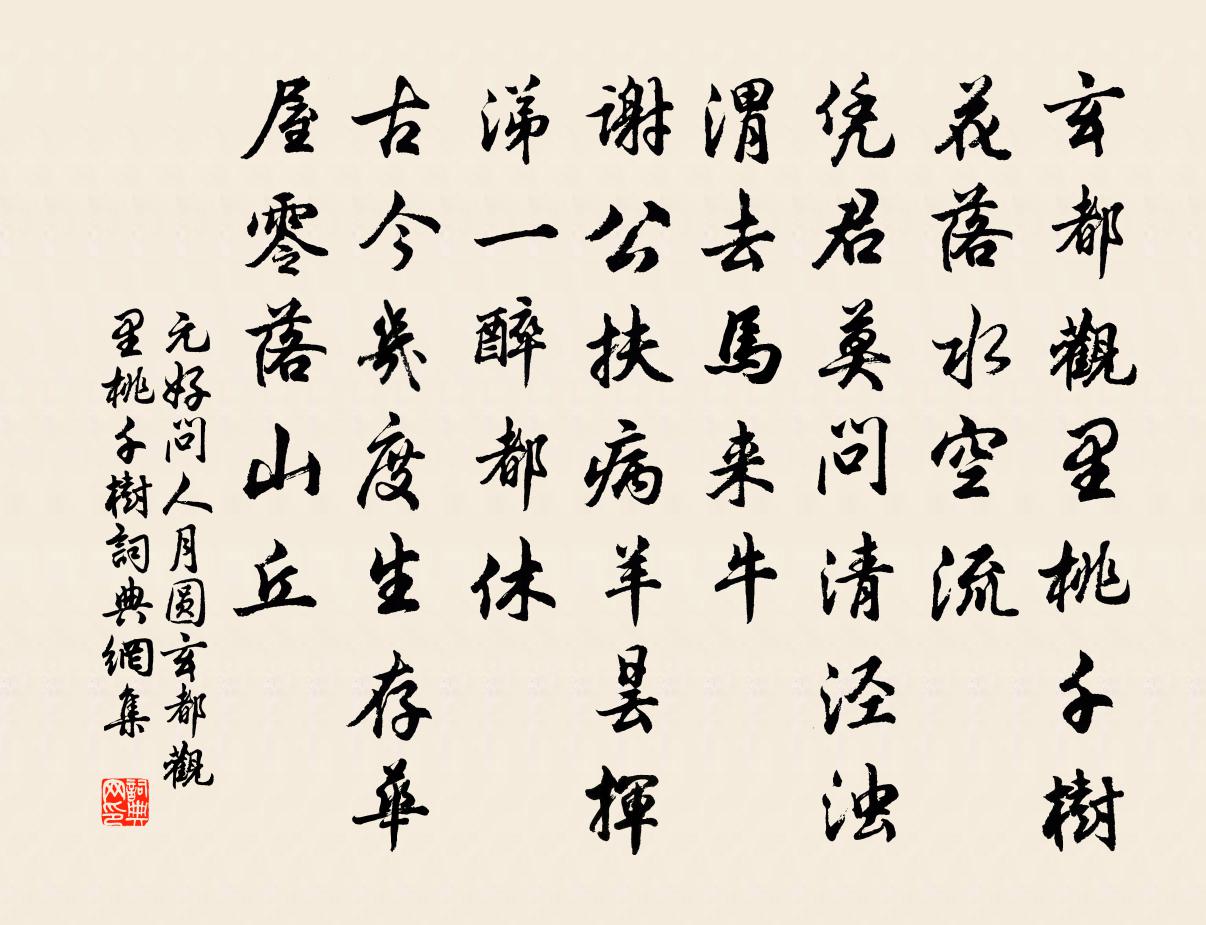 玄都觀里桃千樹
花落水空流
凭君莫問清泾浊
渭去馬来牛
謝公扶病羊昙揮
涕一醉都休
古今幾度生存華
屋零落山丘
元好问人月圆玄都觀
里桃千樹詞典網集
詞典网印